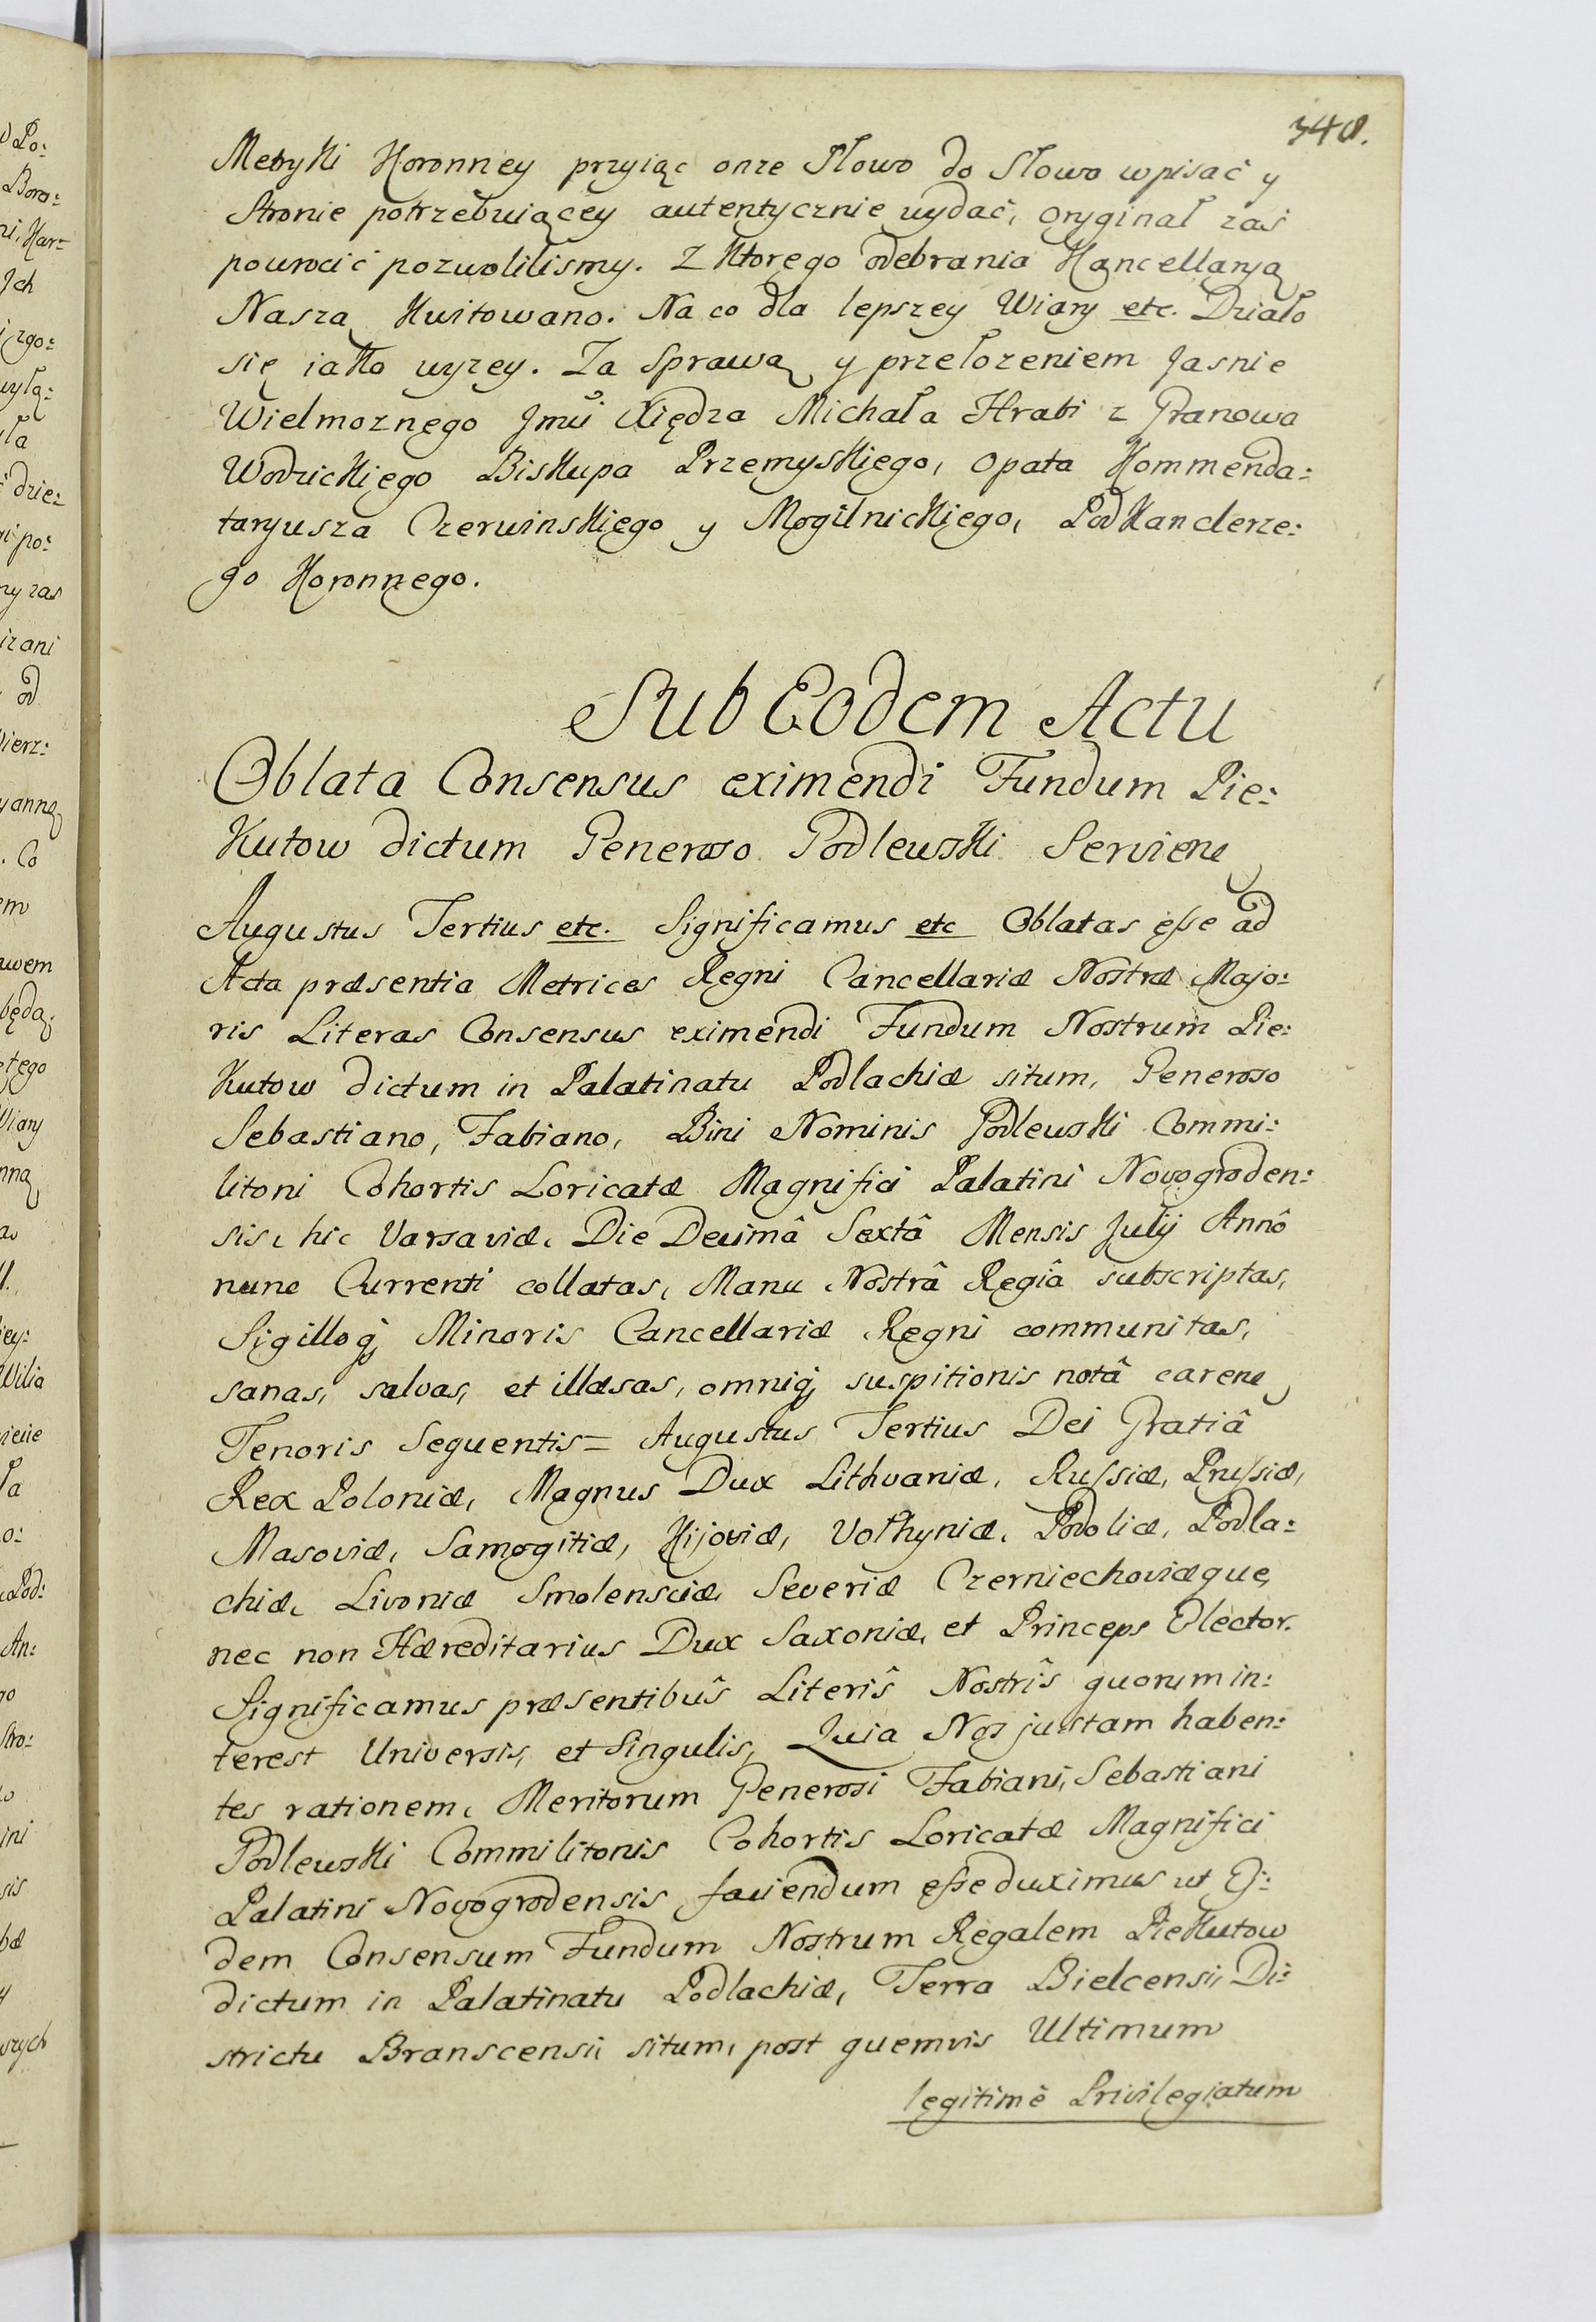 348.
Metryki Koronney przyiąc onze Słowo do Słowa wpisać y
Stronie potrzebuiącey autentycznie wydać, oryginał zaś
powrocić pozwolilismy. Z Ktorego odebrania Kancellaryą
Naszą Kwitowano. Na co dla lepszey Wiary etc. Działo
się iako wyzey. Za Sprawą y przełozeniem Jasnie
Wielmoznego Jmći Xiędza Michała Hrabi z Granowa
Wodzickiego Biskupa Przemyskiego, Opata Kommenda:
taryusza Czerwinskiego y Mogilnickiego, PodKanclerze:
go Koronnego.
Sub Eodem Actu
Oblata Consensus eximendi Fundum Pie:
Kutow dictum Generoso Podlewski Serviens
Augustus Tertius etc. Significamus etc Oblatas esse ad
Acta præsentia Metrices Regni Cancellariæ Nostræ Majo:
ris Literas Consensus eximendi Fundum Nostrum Pie:
Kutow dictum in Palatinatu Podlachiæ situm, Generoso
Sebastiano, Fabiano, Bini Nominis Podlewski Commi:
litoni Cohortis Loricatæ Magnifici Palatini Novogroden:
sis, hic Varsaviæ, Die Decimâ Sextâ Mensis Julij Annô
nunc Currenti collatas, Manu Nostrâ Regiâ subscriptas,
Sigilloq; Minoris Cancellariæ Regni communitas,
sanas, salvas, et illæsas, omniq; suspitionis notâ carene
Tenoris Sequentis= Augustus Tertius Dei Gratiâ
Rex Poloniæ, Magnus Dux Lithvaniæ, Russiæ, Prussiæ,
Masoviæ, Samogitiæ, Kijoviæ, Volhyniæ, Podoliæ, Podla:
chiæ, Livoniæ Smolensciæ Severiæ Czerniechoviæque,
nec non Hæreditarius Dux Saxoniæ, et Princeps Elector.
Significamus præsentibûs Literîs Nostrîs quorum in:
terest Universis, et Singulis, Quia Nos justam haben:
tes rationem, Meritorum Generosi Fabiani, Sebastiani
Podlewski Commilitonis Cohortis Loricatæ Magnifici
Palatini Novogrodensis faciendum esse duximus ut Ej:
dem Consensum Fundum Nostrum Regalem PieKutow
dictum in Palatinatu Podlachiæ, Terra Bielcensi, Di:
strictu Branscensi, situm, post quemvis Ultimum
legitimè Privilegiatum